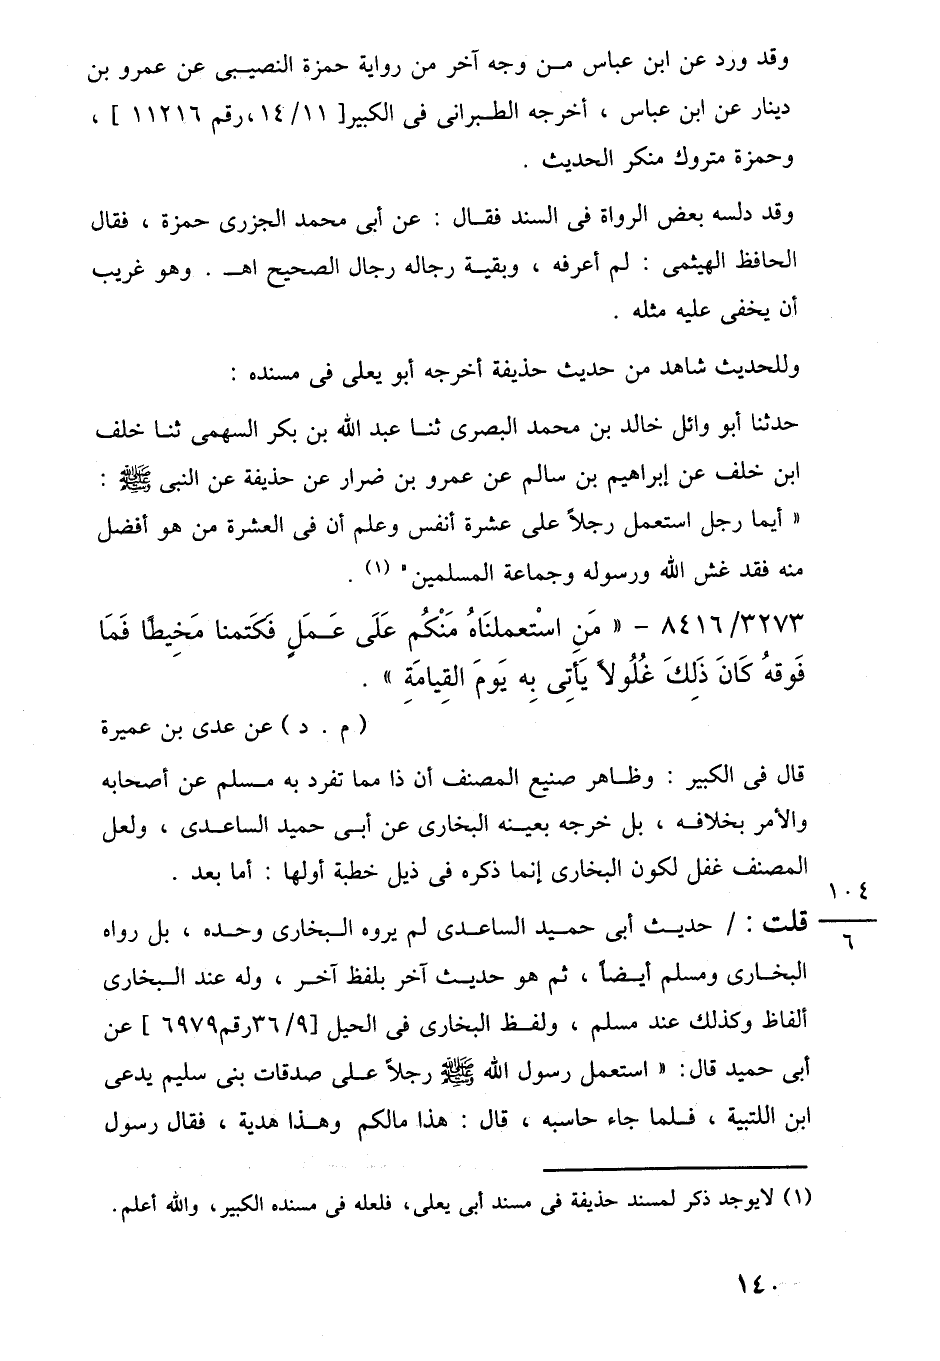 وقد ورد عن ابن عباس من وجه آخر من رواية حمزة النصيبى عن عمرو بن
دينار عن ابن عباس ، أخرجه الطبرانى فى الكبير[ ١٤/١١،رقم ١١٢١٦ ] ،
وحمزة متروك منكر الحديث .
وقد دلسه بعض الرواة فى السند فقال : عن أبى محمد الجزرى حمزة ، فقال
الحافظ الهيثمى : لم أعرفه ، وبقية رجاله رجال الصحيح اهـ . وهو غريب
أن يخفى عليه مثله .
وللحديث شاهد من حديث حذيفة أخرجه أبو يعلى فى مسنده :
حدثنا أبو وائل خالد بن محمد البصرى ثنا عبد الله بن بكر السهمى ثنا خلف
ابن خلف عن إبراهيم بن سالم عن عمرو بن ضرار عن حذيفة عن النبى ﷺ :
« أيما رجل استعمل رجلاً على عشرة أنفس وعلم أن فى العشرة من هو أفضل
منه فقد غش الله ورسوله وجماعة المسلمين" (١) .
٨٤١٦/٣٢٧٣ – « مَنِ اسْتعملنَاهُ مَنْكُم عَلَى عَـمَلٍ فَكَتمنا مَخِيطًا فَمَا
فَوقهُ كَانَ ذَلِكَ غُلُولاً يَأتِى بِه يَومَ القِيامَةِ » .
( م . د ) عن عدى بن عميرة
قال فى الكبير : وظاهر صنيع المصنف أن ذا مما تفرد به مسلم عن أصحابه
والأمر بخلافه ، بل خرجه بعينه البخارى عن أبى حميد الساعدى ، ولعل
المصنف غفل لكون البخارى إنما ذكره فى ذيل خطبة أولها : أما بعد .
١٠٤
٦
قلت : / حديث أبى حميد الساعدى لم يروه البخارى وحده ، بل رواه
البخارى ومسلم أيضاً ، ثم هو حديث آخر بلفظ آخر ، وله عند البخارى
ألفاظ وكذلك عند مسلم ، ولفظ البخارى فى الحيل [٣٦/٩رقم٦٩٧٩ ] عن
أبى حميد قال: « استعمل رسول الله ﷺ رجلاً على صدقات بنى سليم يدعى
ابن اللتبية ، فلما جاء حاسبه ، قال : هذا مالكم وهذا هدية ، فقال رسول
(١) لايوجد ذكر لمسند حذيفة فى مسند أبى يعلى، فلعله فى مسنده الكبير، والله أعلم.
١٤٠